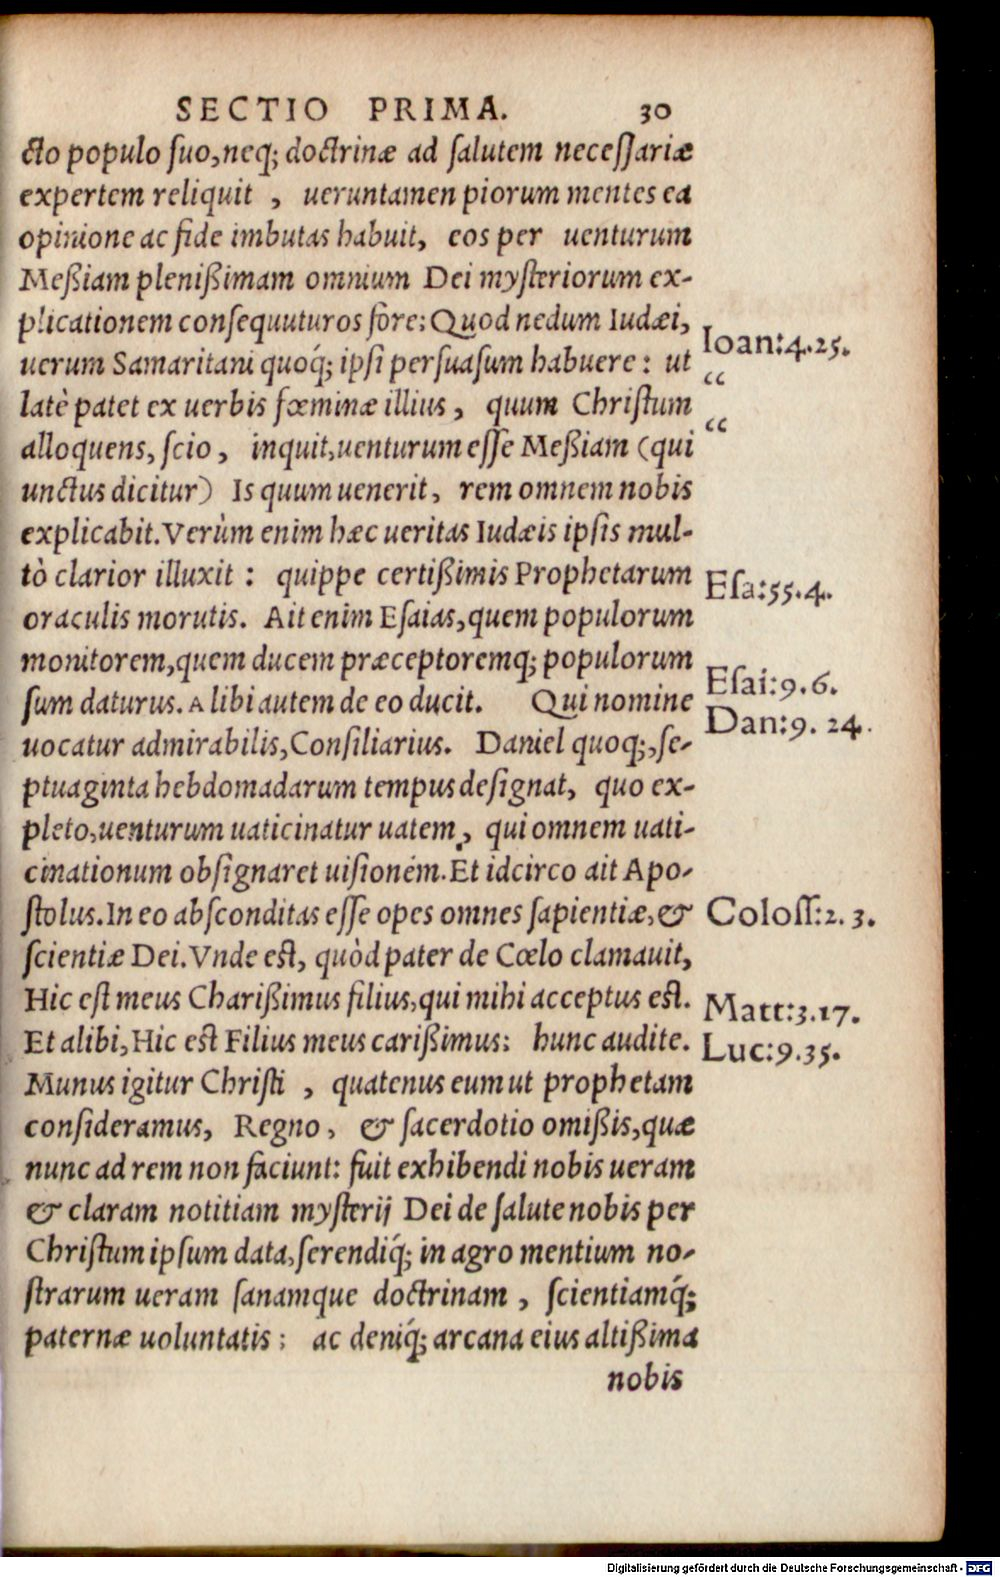 SECTIO PRIMA. 30
cto populo ſuo, neq; doctrinæ ad ſalutem neceſſariæ
expertem reliquit , ueruntamen piorum mentes ea
opinione ac fide imbutas habuit, eos per uenturum
Meßiam plenißimam omnium Dei myſteriorum ex-
plicationem conſequuturos fore: Quod nedum Iudæi,
Ioan: 4. 25.
uerum Samaritani quoq́; ipſi perſuaſum habuere: ut
“
latè patet ex uerbis fœminæ illius, quum Chriſtum
“
alloquens, ſcio, inquit, uenturum eſſe Meßiam (qui
unctus dicitur) Is quum uenerit, rem omnem nobis
explicabit. Verùm enim hæc ueritas Iudæis ipſis mul-
tò clarior illuxit: quippe certißimis Prophetarum
Eſa: 55. 4.
oraculis morutis. Ait enim Eſaias, quem populorum
monitorem, quem ducem præceptoremq; populorum
Eſai: 9. 6.
ſum daturus. Alibi autem de eo ducit. Qui nomine
Dan: 9. 24.
uocatur admirabilis, Conſiliarius. Daniel quoq;, ſe-
ptuaginta hebdomadarum tempus deſignat, quo ex-
pleto, uenturum uaticinatur uatem, qui omnem uati-
cinationum obſignaret uiſionem. Et idcirco ait Apo-
ſtolus. In eo abſconditas eſſe opes omnes ſapientiæ, &
Coloſſ: 2. 3.
ſcientiæ Dei. Vnde eſt, quòd pater de Cœlo clamauit,
Hic eſt meus Charißimus filius, qui mihi acceptus eſt.
Matt: 3. 17.
Et alibi, Hic eſt Filius meus carißimus: hunc audite.
Luc: 9. 35.
Munus igitur Chriſti , quatenus eum ut prophetam
conſideramus, Regno, & ſacerdotio omißis, quæ
nunc ad rem non faciunt: fuit exhibendi nobis ueram
& claram notitiam myſterij Dei de ſalute nobis per
Chriſtum ipſum data, ſerendiq́; in agro mentium no-
ſtrarum ueram ſanamque doctrinam , ſcientiamq́;
paternæ uoluntatis: ac deniq́; arcana eius altißima
nobis
Digitalisierung gefördert durch die Deutsche Forschungsgemeinschaft - DFG